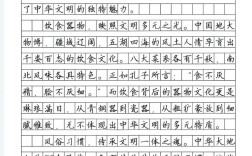 了中华文明的独特魅力。
饮食器物，映照文明多元之光。中国地大
物博，疆域辽阔，五湖四海的风土人情孕育出
千姿百态的饮食文化。八大菜系各有千秋，南
北风味各具特色。正如孔子所言：“食不厌
精，脍不厌细。”而饮食背后的器物文化更是
琳琅满目，从青铜器到瓷器，从粗犷豪放到细
腻雅致，无不体现出中华文明的多元特质。
风俗习惯，传承文明一体之魂。中华大地